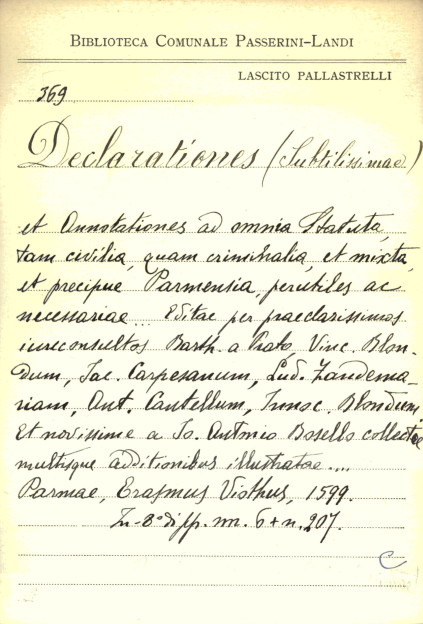 BIBLIOTECA COMUNALE PASSERINI-LANDI
LASCITO PALLASTRELLI
369
Declarationes (Subtilissimae)
et Annotationes ad omnia Statuta,
tam civilia, quam criminalia, et mixta,
et precipue Parmensia, perutiles ac
necessariae... Editae per praeclarissimos
iureconsultos Barth. a Prato, Vinc. Blon-
dum, Jac. Carpesanum, Lud. Zandema-
riam, Ant. Cantellum, Innoc. Blondium
et novissime a Jo. Antonio Bosello collectae
multisque additionibus illustratae....
Parmae, Erasmus Viothus, 1599.
In-8° di pp. nn. 6+n. 207.
C